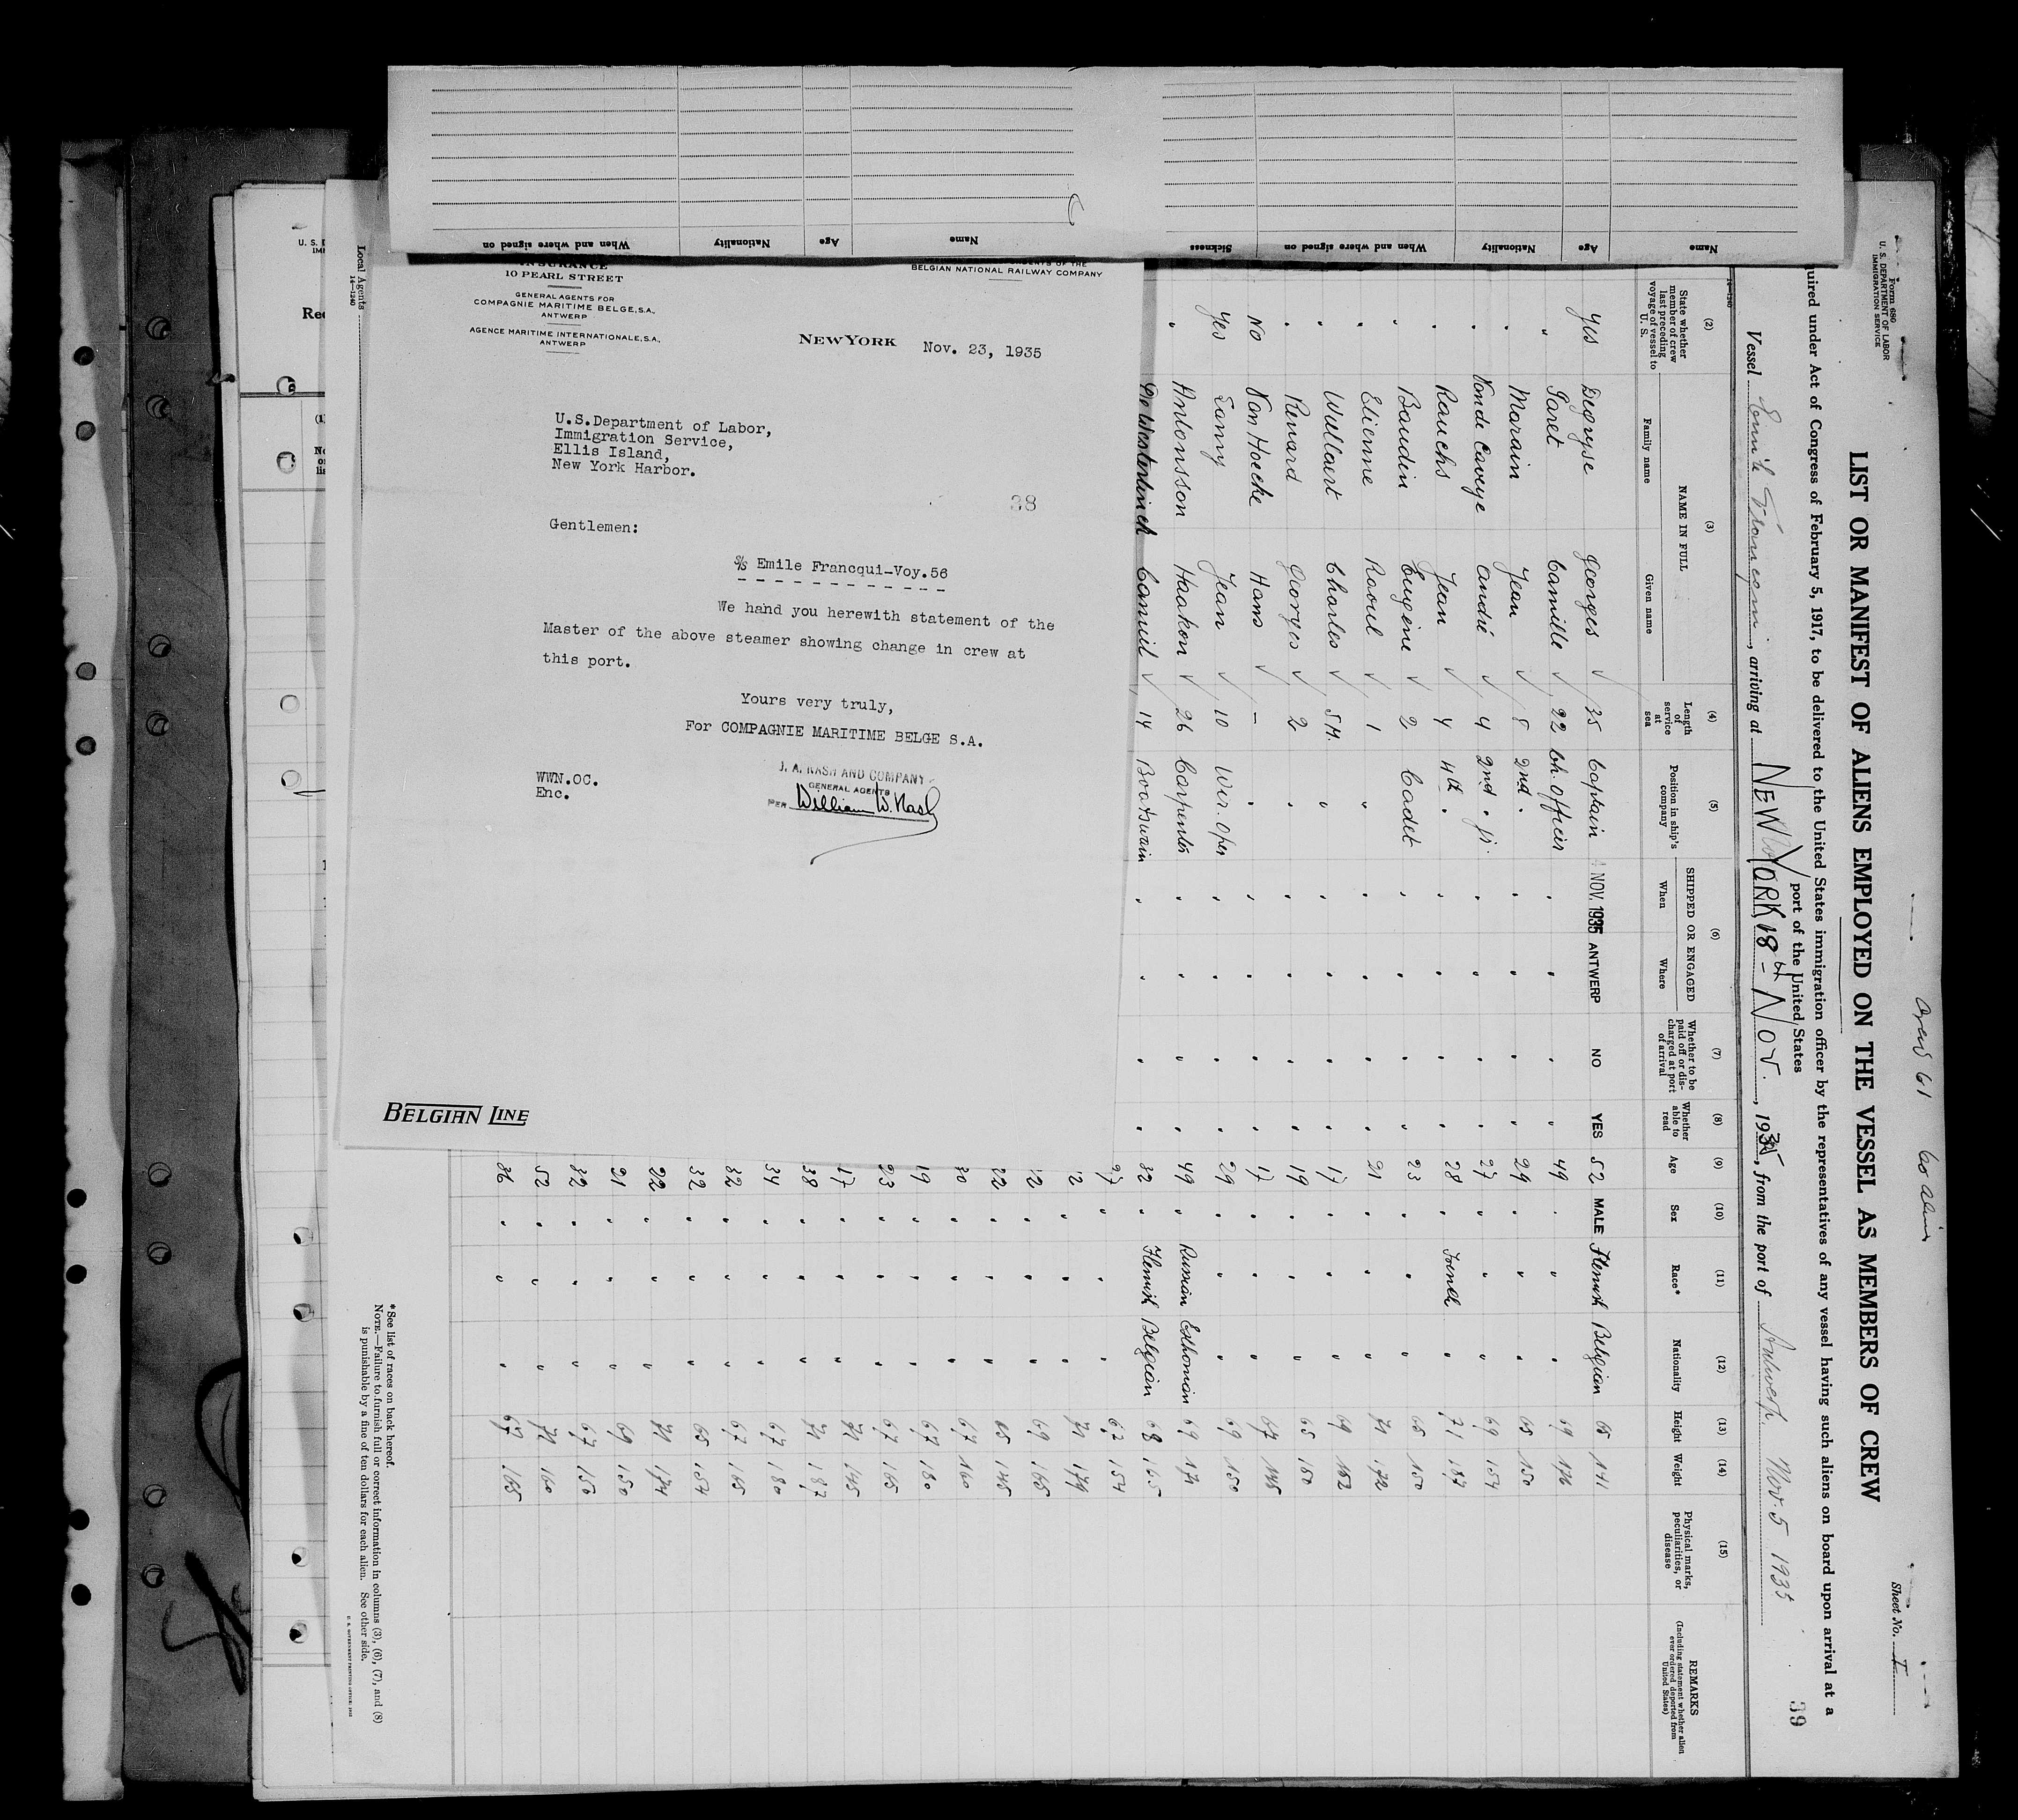 Name
Age
Nationality
When and where signed on
Sickness
Name
Age
Nationality
When and where signed on
INSURANCE
10 PEARL STREET
GENERAL AGENTS FOR
COMPAGNIE MARITIME BELGE, S.A.,
ANTWERP
AGENCE MARITIME INTERNATIONALE, S.A.,
ANTWERP
BELGIAN NATIONAL RAILWAY COMPANY
NEW YORK Nov. 23, 1935
U.S.Department of Labor,
Immigration Service,
Ellis Island,
New York Harbor.
38
Gentlemen:
S/S Emile Francqui-Voy.56
We hand you herewith statement of the
Master of the above steamer showing change in crew at
this port.
Yours very truly,
For COMPAGNIE MARITIME BELGE S.A.
WWN.OC.
Enc.
J. A. NASH AND COMPANY
GENERAL AGENTS
PER William W. Nash
BELGIAN LINE
Local Agents
14—1240
Form 680
U. S. DEPARTMENT OF LABOR
IMMIGRATION SERVICE
Crew 61 60 aliens
Sheet No. I
LIST OR MANIFEST OF ALIENS EMPLOYED ON THE VESSEL AS MEMBERS OF CREW
uired under Act of Congress of February 5, 1917, to be delivered to the United States immigration officer by the representatives of any vessel having such aliens on board upon arrival at a
port of the United States
39
Vessel Emile Francqui, arriving at NEW YORK, 18th Nov., 1935, from the port of Antwerp Nov. 5 1935
(2) State whether member of crew last preceding voyage of vessel to U. S.
(3) NAME IN FULL Family name Given name
(4) Length of service at sea
(5) Position in ship's company
(6) SHIPPED OR ENGAGED When Where
(7) Whether to be paid off or discharged at port of arrival
(8) Whether able to read
(9) Age
(10) Sex
(11) Race*
(12) Nationality
(13) Height
(14) Weight
(15) Physical marks, peculiarities, or disease
REMARKS (Including statement whether alien ever ordered deported from United States)
Yes Degryse Georges 35 Captain NOV. 1935 ANTWERP NO YES 52 MALE Flemish Belgian 65 141
" Paret Camille 22 Ch. Officer " " " " 49 " " " 69 176
" Marain Jean 8 2nd " " " " " 29 " " " 65 150
" Vande Caveye André 4 2nd " jr. " " " " 27 " " " 69 154
" Rauchs Jean 4 4th " " " " " 28 " French " 71 187
" Baudin Eugène 2 Cadet " " " " 23 " " " 65 150
" Etienne Raoul 1 " " " " " 21 " " " 71 172
" Willaert Charles 5 M. " " " " " 17 " " " 69 152
" Renard Georges 2 " " " " " 19 " " " 65 150
No Van Hoecke Hans – " " " " " 17 " " " 67 145
Yes Lanny Jean 10 Wir. Oper " " " " 29 " " " 69 150
" Antonsson Haakon 26 Carpenter " " " " 49 " Russian Esthonian 69 171
De Westerlinck Camiel 14 Boatswain " " " " 32 " Flemish Belgian 68 165
27 " " " 67 154
42 " " " 71 174
42 " " " 69 165
22 " " " 65 145
30 " " " 67 160
19 " " " 67 180
23 " " " 67 165
47 " " " 71 145
38 " " " 71 187
34 " " " 67 180
32 " " " 67 165
32 " " " 65 154
22 " " " 71 174
21 " " " 69 150
32 " " " 67 150
52 " " " 71 160
36 " " " 67 165
* See list of races on back hereof.
NOTE.—Failure to furnish full or correct information in columns (3), (6), (7), and (8)
is punishable by a fine of ten dollars for each alien. See other side.